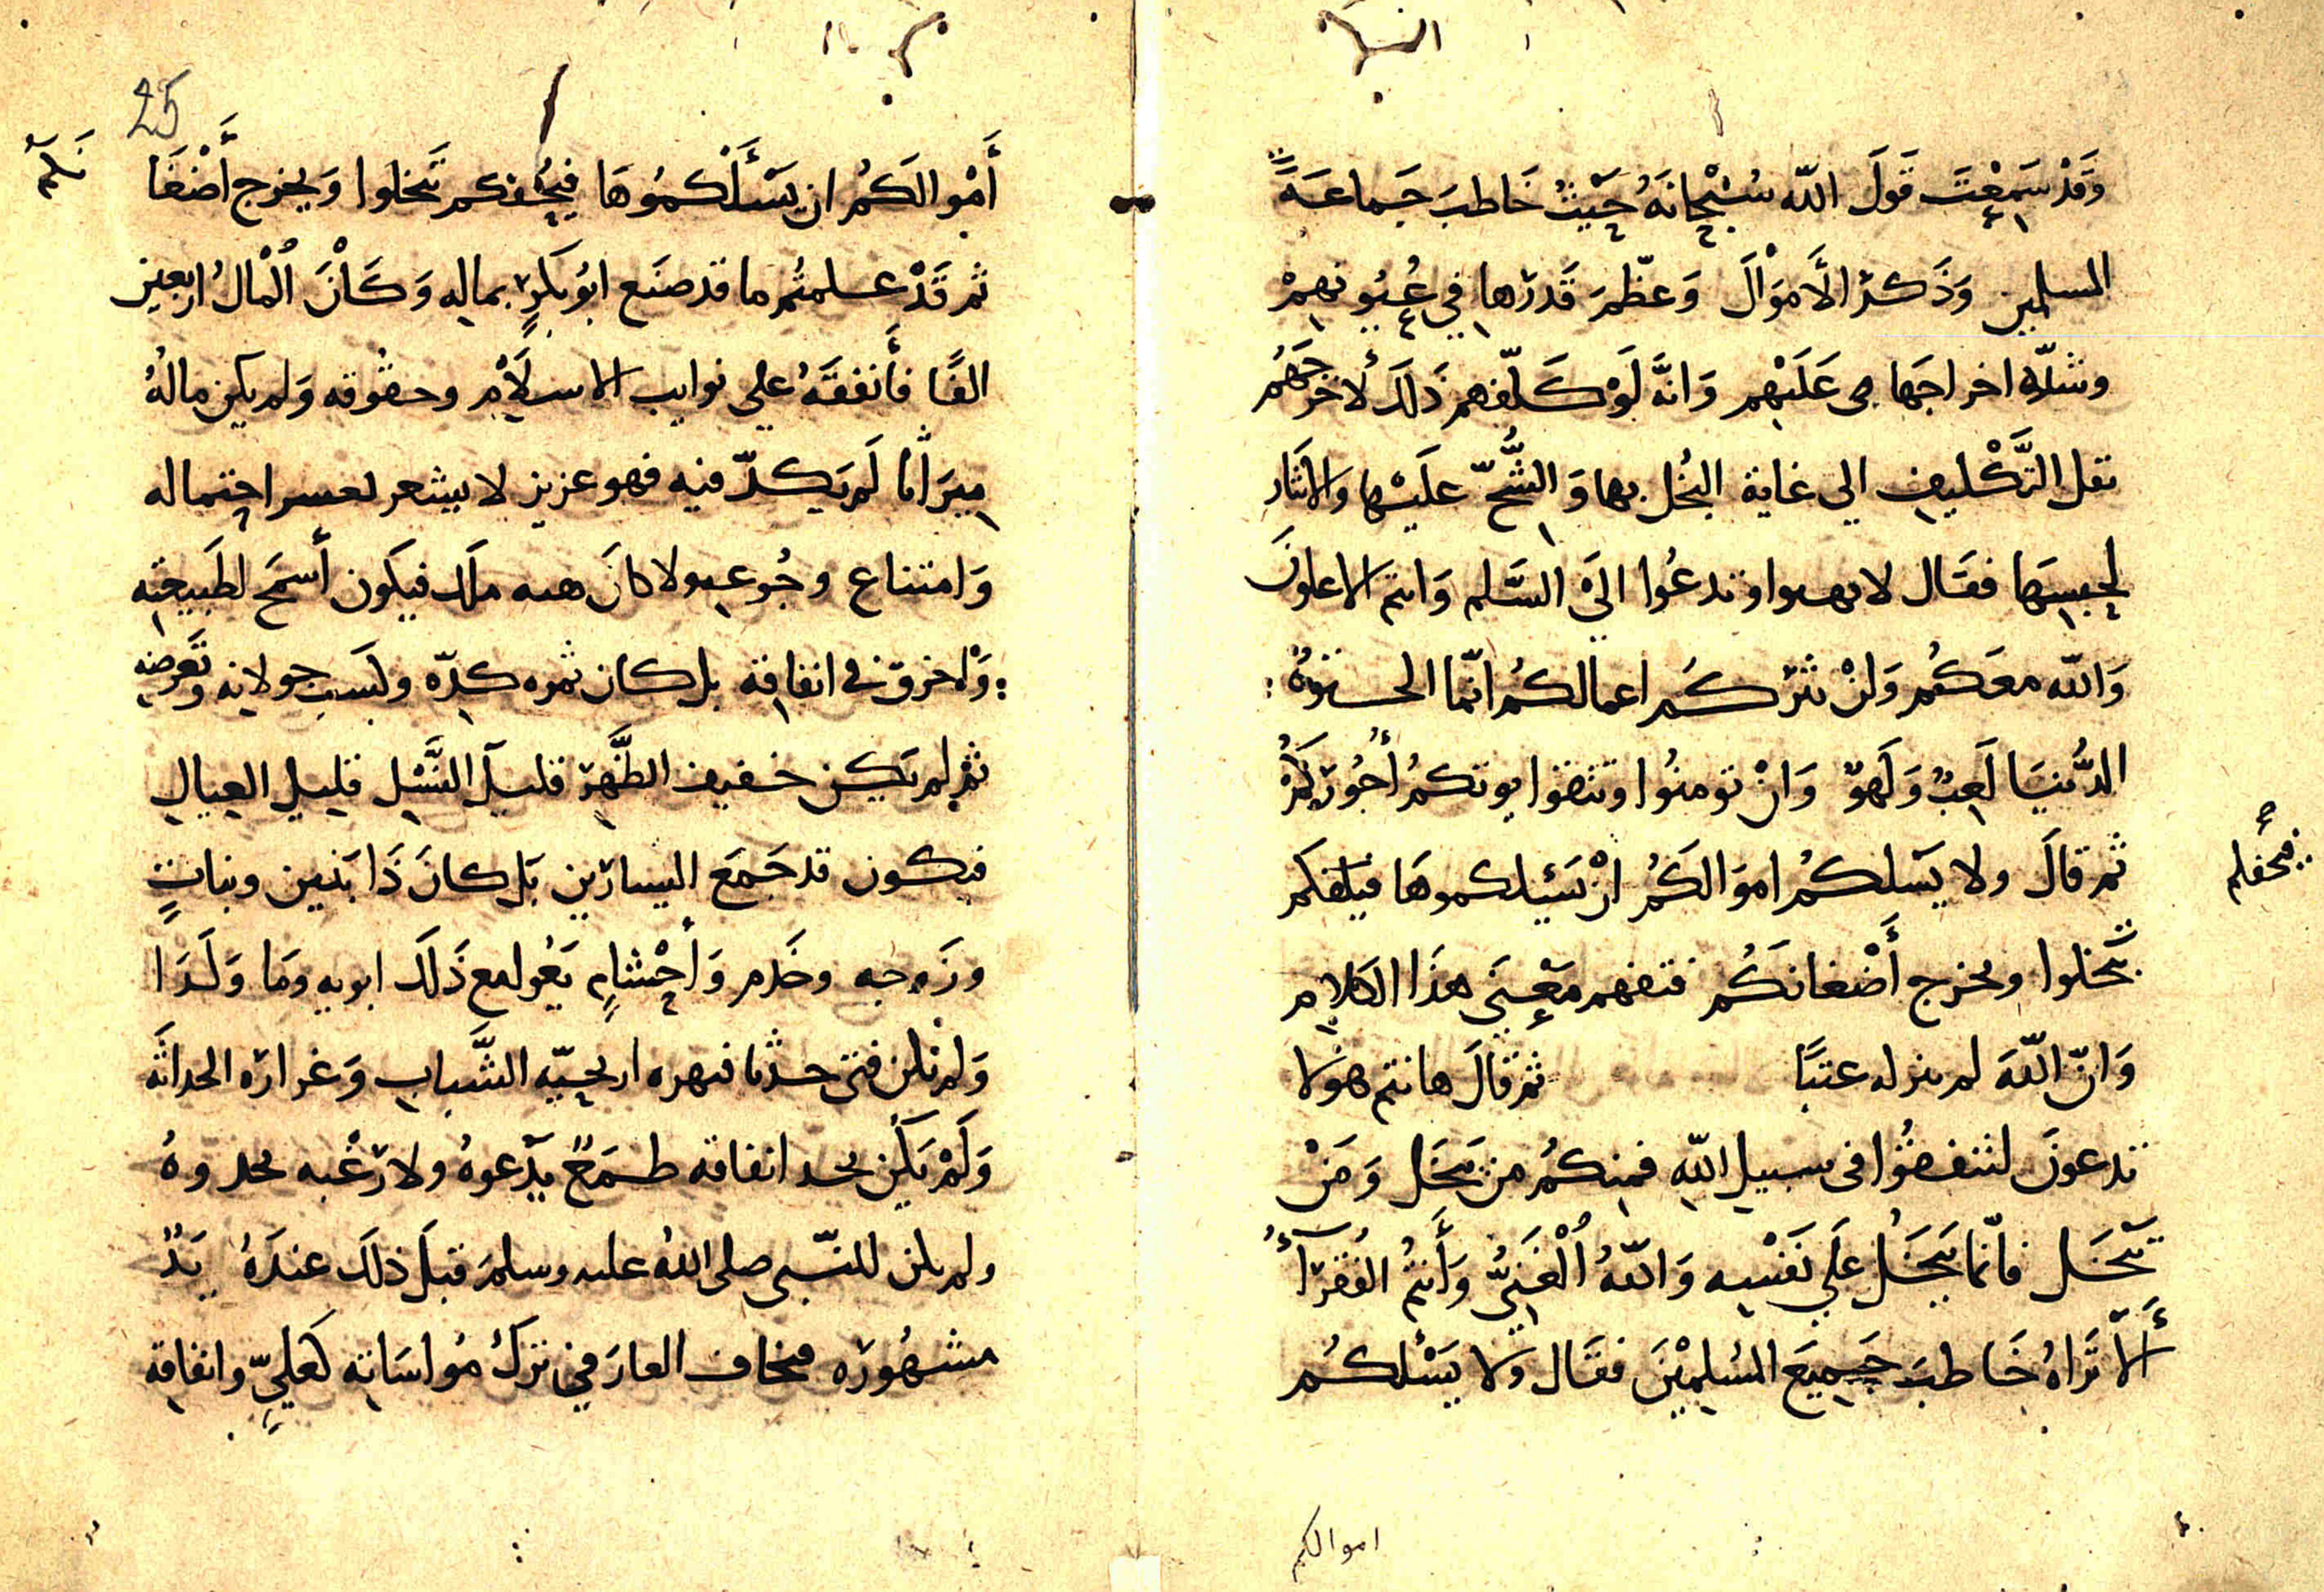 وَقَدْ سَمِعْتَ قَولَ اللّه سُبْحَانَهُ حَيْثُ خَاطبَ جَماعَةً
المسلمين وَذَكرَ الأَموَالَ وَعظّمَ قَدرَها في عُيُونهِمْ
وشدّة اخراجَها عَلَيْهم وَانَّه لَوْ كَلّفهم ذَلكَ لأخرَجَهُم
ثقل التَّكْليف الي غاية البُخل بها وَ الشُّحّ عليْها والايثار
لحبسِهَا فقَال لا تهنوا وتدعُوا الَى السَّلم وَانتم الاعلونَ
وَاللّه معَكُم وَلَنْ يَتركُم اعمالكُم انّما الحيوة
الدُّنيَا لَعِبٌ وَلَهوٌ وَانْ تومنُوا وتتقوا يوتكمُ أُجُورَكُمْ
ثم قالَ ولا يَسلكمُ اموَالَكُم انْ يَسْئَلكموهَا فيحفكم
فيحفكم
تَبْخلوا ويخرج أَضْغانَكُم فتفهم مَعْنَى هذَا الكلام
وَانّ اللّهَ لم ينزله عبثًا ثم قالَ هانتم هولا
تدعونَ لتنفقُوا فى سبيل اللّه فمِنكُم من يَبْخَل وَمَنْ
يَبْخَل فانّما يَبْخَلُ عَلي نَفْسِه وَاللّهُ اُلْغَنِيُّ وَأَنتُم الفُقَرَآءُ
أَلاَ تَرَاهُ خَاطبَ جَميعَ المُسْلِمِيْنَ فقَال ولا يَسْئلكُم
اموالكم
25
أَمْوالَكُم ان يَسْأَلْكمُوهَا فيُحْفكم تَبْخلوا وَيخرج أَضْغَا
نَكُمْ
ثم قَدْ عَلمتُم ما قد صنَع ابُو بَكرٍ بماله وَكَاْنَ اُلْمَالُ اربعين
الفًا فأَنفقَهُ علي نوايب الاسلاَم وحقُوقه وَلم يكن مالهُ
ميرَاثًا لَم يَكدّ فيه فهو عزيز لا يشعر لعسر اجتماله
وَامتناع رجُوعه ولا كانَ هبه ملك فيكون أسمَح لطَبيعته
وَاخرق في انفاقه بل كان ثمره كدّه وكسب جولانه وتَعَرضه
ثم لم يَكن خفيف الظَّهر قليل النَّسْل قليل العيال
فيكون قد جَمَعَ اليسارَين بَل كانَ ذَا بَنين وبناتٍ
وزَوجه وخَدم وَأحْشامٍ يَعُول مع ذَلكَ ابويه وَمَا وَلَدَا
وَلم يكن فتى حدثا فتهزه اريحيّه الشَّباب وَغراره الحداثَه
وَلَمْ يَكُن بحد انفاقه طمَعٌ يَدْعوهُ ولا رَغْبه تحدوهُ
ولم يكن للنّبي صلى اللهُ عليه وسلمَ قبلَ ذلكَ عندَهُ يَدٌ
مشهُورَه فيخاف العارَ في تركُ مُواسَاتِه كعَليّ وانفاقه